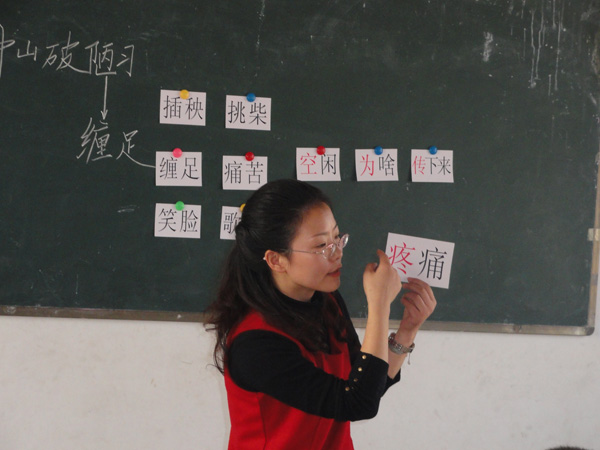 中山破陋习
缠足
插秧 挑柴
缠足 痛苦 空闲 为啥 传下来
笑脸 歌
疼痛